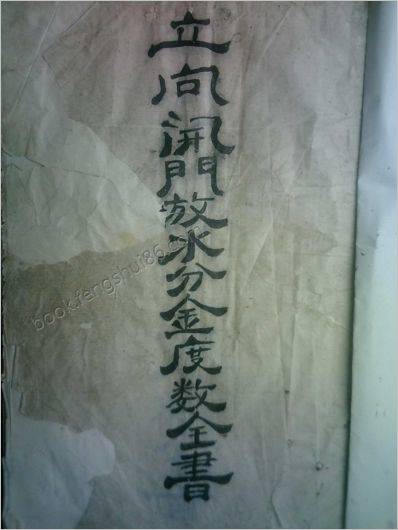 立向開門放水分金度数全書
book.fengshui86.com